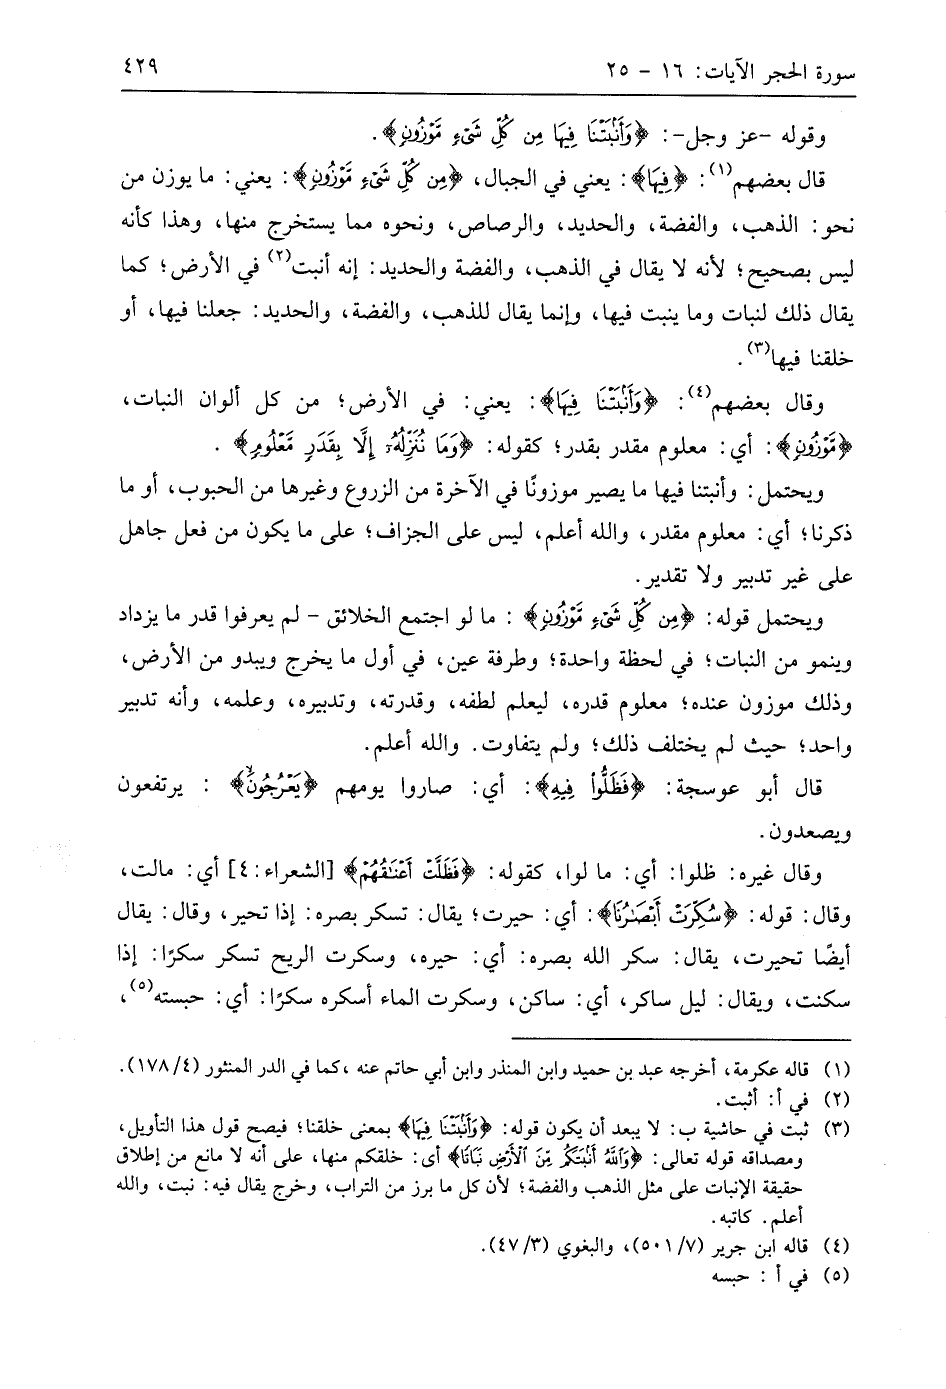 سورة الحجر الآيات: ١٦ - ٢٥
٤٢٩
وقوله -عز وجل-: ﴿وَأَنۢبَتۡنَا فِيهَا مِن كُلِّ شَيۡءٖ مَّوۡزُونٖ﴾.
قال بعضهم(١): ﴿فِيهَا﴾: يعني في الجبال، ﴿مِن كُلِّ شَيۡءٖ مَّوۡزُونٖ﴾: يعني: ما يوزن من
نحو: الذهب، والفضة، والحديد، والرصاص، ونحوه مما يستخرج منها، وهذا كأنه
ليس بصحيح؛ لأنه لا يقال في الذهب، والفضة والحديد: إنه أنبت(٢) في الأرض؛ كما
يقال ذلك لنبات وما ينبت فيها، وإنما يقال للذهب، والفضة، والحديد: جعلنا فيها، أو
خلقنا فيها(٣).
وقال بعضهم(٤): ﴿وَأَنۢبَتۡنَا فِيهَا﴾: يعني: في الأرض؛ من كل ألوان النبات،
﴿مَّوۡزُونٖ﴾: أي: معلوم مقدر بقدر؛ كقوله: ﴿وَمَا نُنَزِّلُهُۥٓ إِلَّا بِقَدَرٖ مَّعۡلُومٖ﴾ .
ويحتمل: وأنبتنا فيها ما يصير موزونًا في الآخرة من الزروع وغيرها من الحبوب، أو ما
ذكرنا؛ أي: معلوم مقدر، والله أعلم، ليس على الجزاف؛ على ما يكون من فعل جاهل
على غير تدبير ولا تقدير.
ويحتمل قوله: ﴿مِن كُلِّ شَيۡءٖ مَّوۡزُونٖ﴾ : ما لو اجتمع الخلائق - لم يعرفوا قدر ما يزداد
وينمو من النبات؛ في لحظة واحدة؛ وطرفة عين، في أول ما يخرج ويبدو من الأرض،
وذلك موزون عنده؛ معلوم قدره، ليعلم لطفه، وقدرته، وتدبيره، وعلمه، وأنه تدبير
واحد؛ حيث لم يختلف ذلك؛ ولم يتفاوت. والله أعلم.
قال أبو عوسجة: ﴿فَظَلُّواْ فِيهِ﴾: أي: صاروا يومهم ﴿يَعۡرُجُونَۙ﴾ : يرتفعون
ويصعدون.
وقال غيره: ظلوا: أي: ما لوا، كقوله: ﴿فَظَلَّتۡ أَعۡنَٰقُهُمۡ﴾ [الشعراء: ٤] أي: مالت،
وقال: قوله: ﴿سُكِّرَتۡ أَبۡصَٰرُنَا﴾: أي: حيرت؛ يقال: تسكر بصره: إذا تحير، وقال: يقال
أيضًا تحيرت، يقال: سكر الله بصره: أي: حيره، وسكرت الريح تسكر سكرًا: إذا
سكنت، ويقال: ليل ساكر، أي: ساكن، وسكرت الماء أسكره سكرًا: أي: حبسته(٥)،
(١) قاله عكرمة، أخرجه عبد بن حميد وابن المنذر وابن أبي حاتم عنه ،كما في الدر المنثور (٤/ ١٧٨).
(٢) في أ: أثبت.
(٣) ثبت في حاشية ب: لا يبعد أن يكون قوله: ﴿وَأَنۢبَتۡنَا فِيهَا﴾ بمعنى خلقنا؛ فيصح قول هذا التأويل،
ومصداقه قوله تعالى: ﴿وَٱللَّهُ أَنۢبَتَكُم مِّنَ ٱلۡأَرۡضِ نَبَاتٗا﴾ أى: خلقكم منها، على أنه لا مانع من إطلاق
حقيقة الإنبات على مثل الذهب والفضة؛ لأن كل ما برز من التراب، وخرج يقال فيه: نبت، والله
أعلم. كاتبه.
(٤) قاله ابن جرير (٧/ ٥٠١)، والبغوي (٣/ ٤٧).
(٥) في أ : حبسه